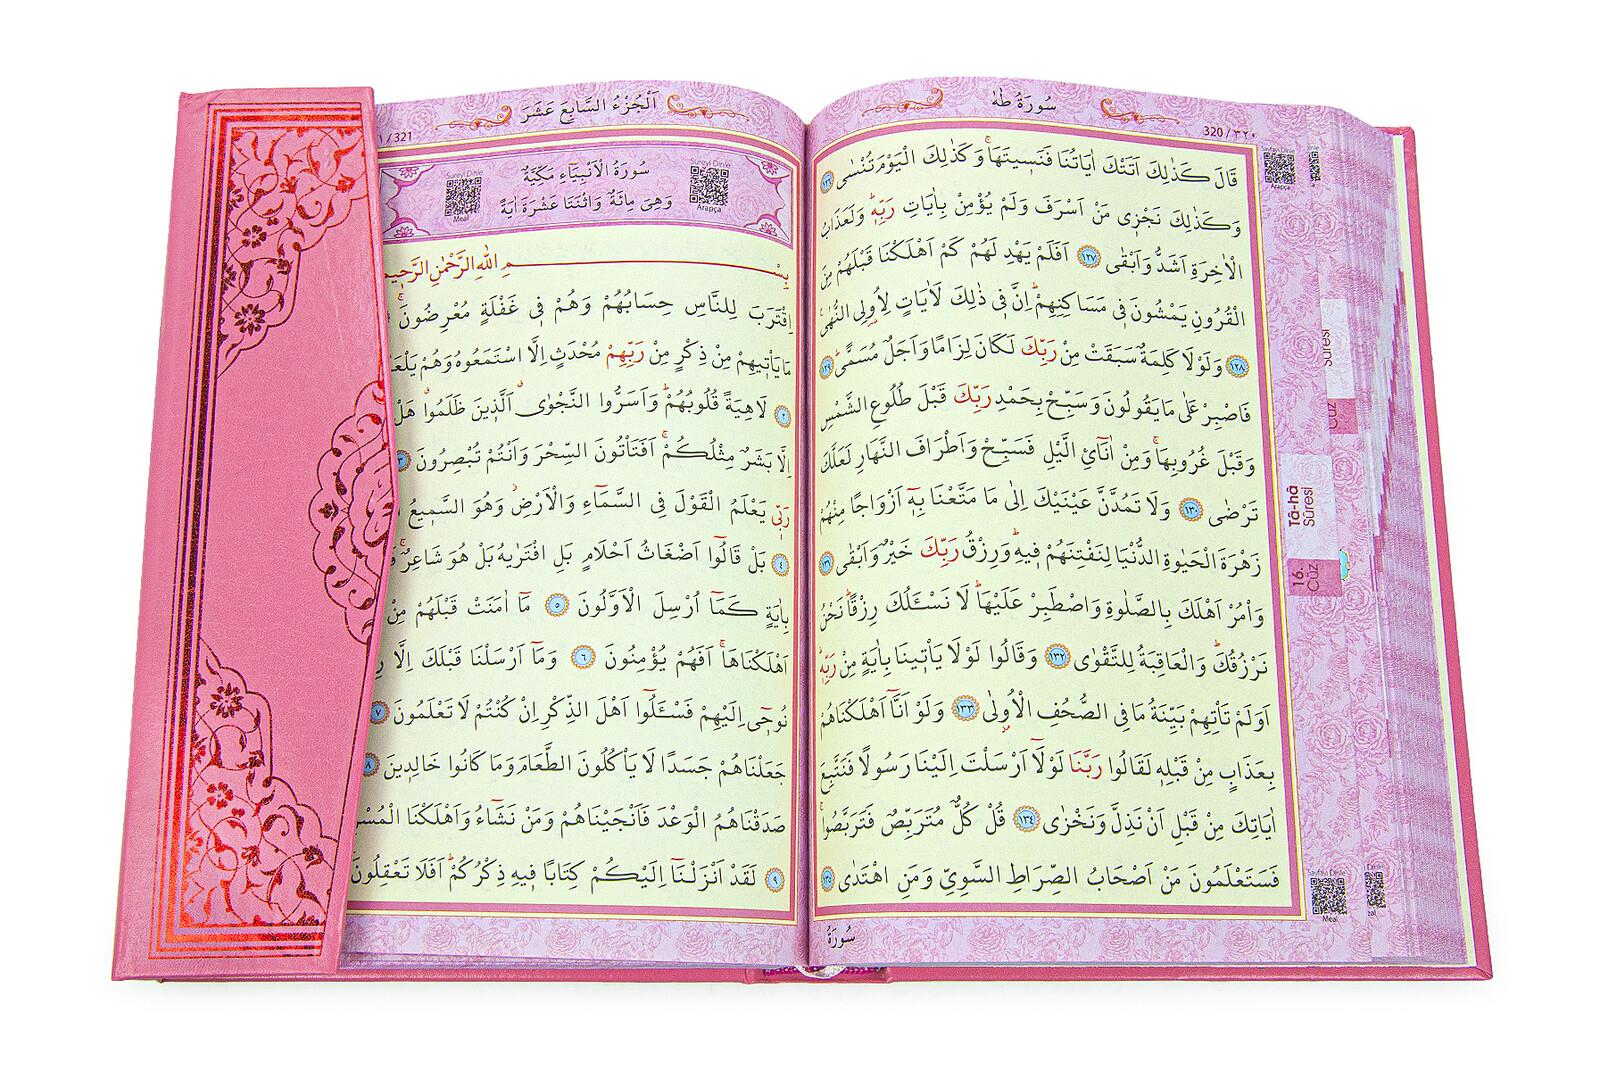 سُورَةُ طٰهٰ
320 / ٣٢٠
قَالَ كَذٰلِكَ اَتَتْكَ اٰيَاتُنَا فَنَسِيتَهَاۚ وَكَذٰلِكَ الْيَوْمَ تُنْسٰى ﴿١٢٦﴾
وَكَذٰلِكَ نَجْزٖى مَنْ اَسْرَفَ وَلَمْ يُؤْمِنْ بِاٰيَاتِ رَبِّهٖۜ وَلَعَذَابُ
الْاٰخِرَةِ اَشَدُّ وَاَبْقٰى ﴿١٢٧﴾ اَفَلَمْ يَهْدِ لَهُمْ كَمْ اَهْلَكْنَا قَبْلَهُمْ مِنَ
الْقُرُونِ يَمْشُونَ فٖى مَسَاكِنِهِمْۜ اِنَّ فٖى ذٰلِكَ لَاٰيَاتٍ لِاُولِى النُّهٰى
﴿١٢٨﴾ وَلَوْلَا كَلِمَةٌ سَبَقَتْ مِنْ رَبِّكَ لَكَانَ لِزَامًا وَاَجَلٌ مُسَمًّىۜ ﴿١٢٩﴾
فَاصْبِرْ عَلٰى مَا يَقُولُونَ وَسَبِّحْ بِحَمْدِ رَبِّكَ قَبْلَ طُلُوعِ الشَّمْسِ
وَقَبْلَ غُرُوبِهَاۚ وَمِنْ اٰنَآئِ الَّيْلِ فَسَبِّحْ وَاَطْرَافَ النَّهَارِ لَعَلَّكَ
تَرْضٰى ﴿١٣٠﴾ وَلَا تَمُدَّنَّ عَيْنَيْكَ اِلٰى مَا مَتَّعْنَا بِهٖٓ اَزْوَاجًا مِنْهُمْ
زَهْرَةَ الْحَيٰوةِ الدُّنْيَا لِنَفْتِنَهُمْ فٖيهِۜ وَرِزْقُ رَبِّكَ خَيْرٌ وَاَبْقٰى ﴿١٣١﴾
وَأْمُرْ اَهْلَكَ بِالصَّلٰوةِ وَاصْطَبِرْ عَلَيْهَاۜ لَا نَسْـَٔلُكَ رِزْقًاۜ نَحْنُ
نَرْزُقُكَۜ وَالْعَاقِبَةُ لِلتَّقْوٰى ﴿١٣٢﴾ وَقَالُوا لَوْلَا يَأْتٖينَا بِاٰيَةٍ مِنْ رَبِّهٖۜ
اَوَلَمْ تَأْتِهِمْ بَيِّنَةُ مَا فِى الصُّحُفِ الْاُولٰى ﴿١٣٣﴾ وَلَوْ اَنَّٓا اَهْلَكْنَاهُمْ
بِعَذَابٍ مِنْ قَبْلِهٖ لَقَالُوا رَبَّنَا لَوْلَٓا اَرْسَلْتَ اِلَيْنَا رَسُولًا فَنَتَّبِعَ
اٰيَاتِكَ مِنْ قَبْلِ اَنْ نَذِلَّ وَنَخْزٰى ﴿١٣٤﴾ قُلْ كُلٌّ مُتَرَبِّصٌ فَتَرَبَّصُواۚ
فَسَتَعْلَمُونَ مَنْ اَصْحَابُ الصِّرَاطِ السَّوِىِّ وَمَنِ اهْتَدٰى ﴿١٣٥﴾
سُورَةُ
Sayfayı Dinle
Arapça
Sûresi
Cüz
Tâ-hâ
Sûresi
16.
Cüz
Sayfayı Dinle
Meal
اَلْجُزْءُ السَّابِعَ عَشَرَ
١ / 321
سُورَةُ الْاَنْبِيَٓاءِ مَكِّيَّةٌ
وَهِىَ مِائَةٌ وَاثْنَتَا عَشْرَةَ اٰيَةً
Sureyi Dinle
Arapça
Sureyi Dinle
Meal
بِسْمِ اللّٰهِ الرَّحْمٰنِ الرَّحٖيمِ
اِقْتَرَبَ لِلنَّاسِ حِسَابُهُمْ وَهُمْ فٖى غَفْلَةٍ مُعْرِضُونَۚ
مَا يَأْتٖيهِمْ مِنْ ذِكْرٍ مِنْ رَبِّهِمْ مُحْدَثٍ اِلَّا اسْتَمَعُوهُ وَهُمْ
﴿٢﴾ لَاهِيَةً قُلُوبُهُمْۜ وَاَسَرُّوا النَّجْوٰى الَّذٖينَ ظَلَمُوا هَلْ
اِلَّا بَشَرٌ مِثْلُكُمْۚ اَفَتَأْتُونَ السِّحْرَ وَاَنْتُمْ تُبْصِرُونَ ﴿٣﴾
رَبّٖى يَعْلَمُ الْقَوْلَ فِى السَّمَٓاءِ وَالْاَرْضِۘ وَهُوَ السَّمٖيعُ
﴿٤﴾ بَلْ قَالُٓوا اَضْغَاثُ اَحْلَامٍ بَلِ افْتَرٰيهُ بَلْ هُوَ شَاعِرٌۚ
بِاٰيَةٍ كَمَٓا اُرْسِلَ الْاَوَّلُونَ ﴿٥﴾ مَٓا اٰمَنَتْ قَبْلَهُمْ مِنْ
اَهْلَكْنَاهَاۚ اَفَهُمْ يُؤْمِنُونَ ﴿٦﴾ وَمَٓا اَرْسَلْنَا قَبْلَكَ اِلَّا
نُوحٖٓى اِلَيْهِمْ فَسْـَٔلُٓوا اَهْلَ الذِّكْرِ اِنْ كُنْتُمْ لَا تَعْلَمُونَ ﴿٧﴾
جَعَلْنَاهُمْ جَسَدًا لَا يَأْكُلُونَ الطَّعَامَ وَمَا كَانُوا خَالِدٖينَ ﴿٨﴾
صَدَقْنَاهُمُ الْوَعْدَ فَاَنْجَيْنَاهُمْ وَمَنْ نَشَٓاءُ وَاَهْلَكْنَا
﴿٩﴾ لَقَدْ اَنْزَلْنَٓا اِلَيْكُمْ كِتَابًا فٖيهِ ذِكْرُكُمْۜ اَفَلَا تَعْقِلُونَ